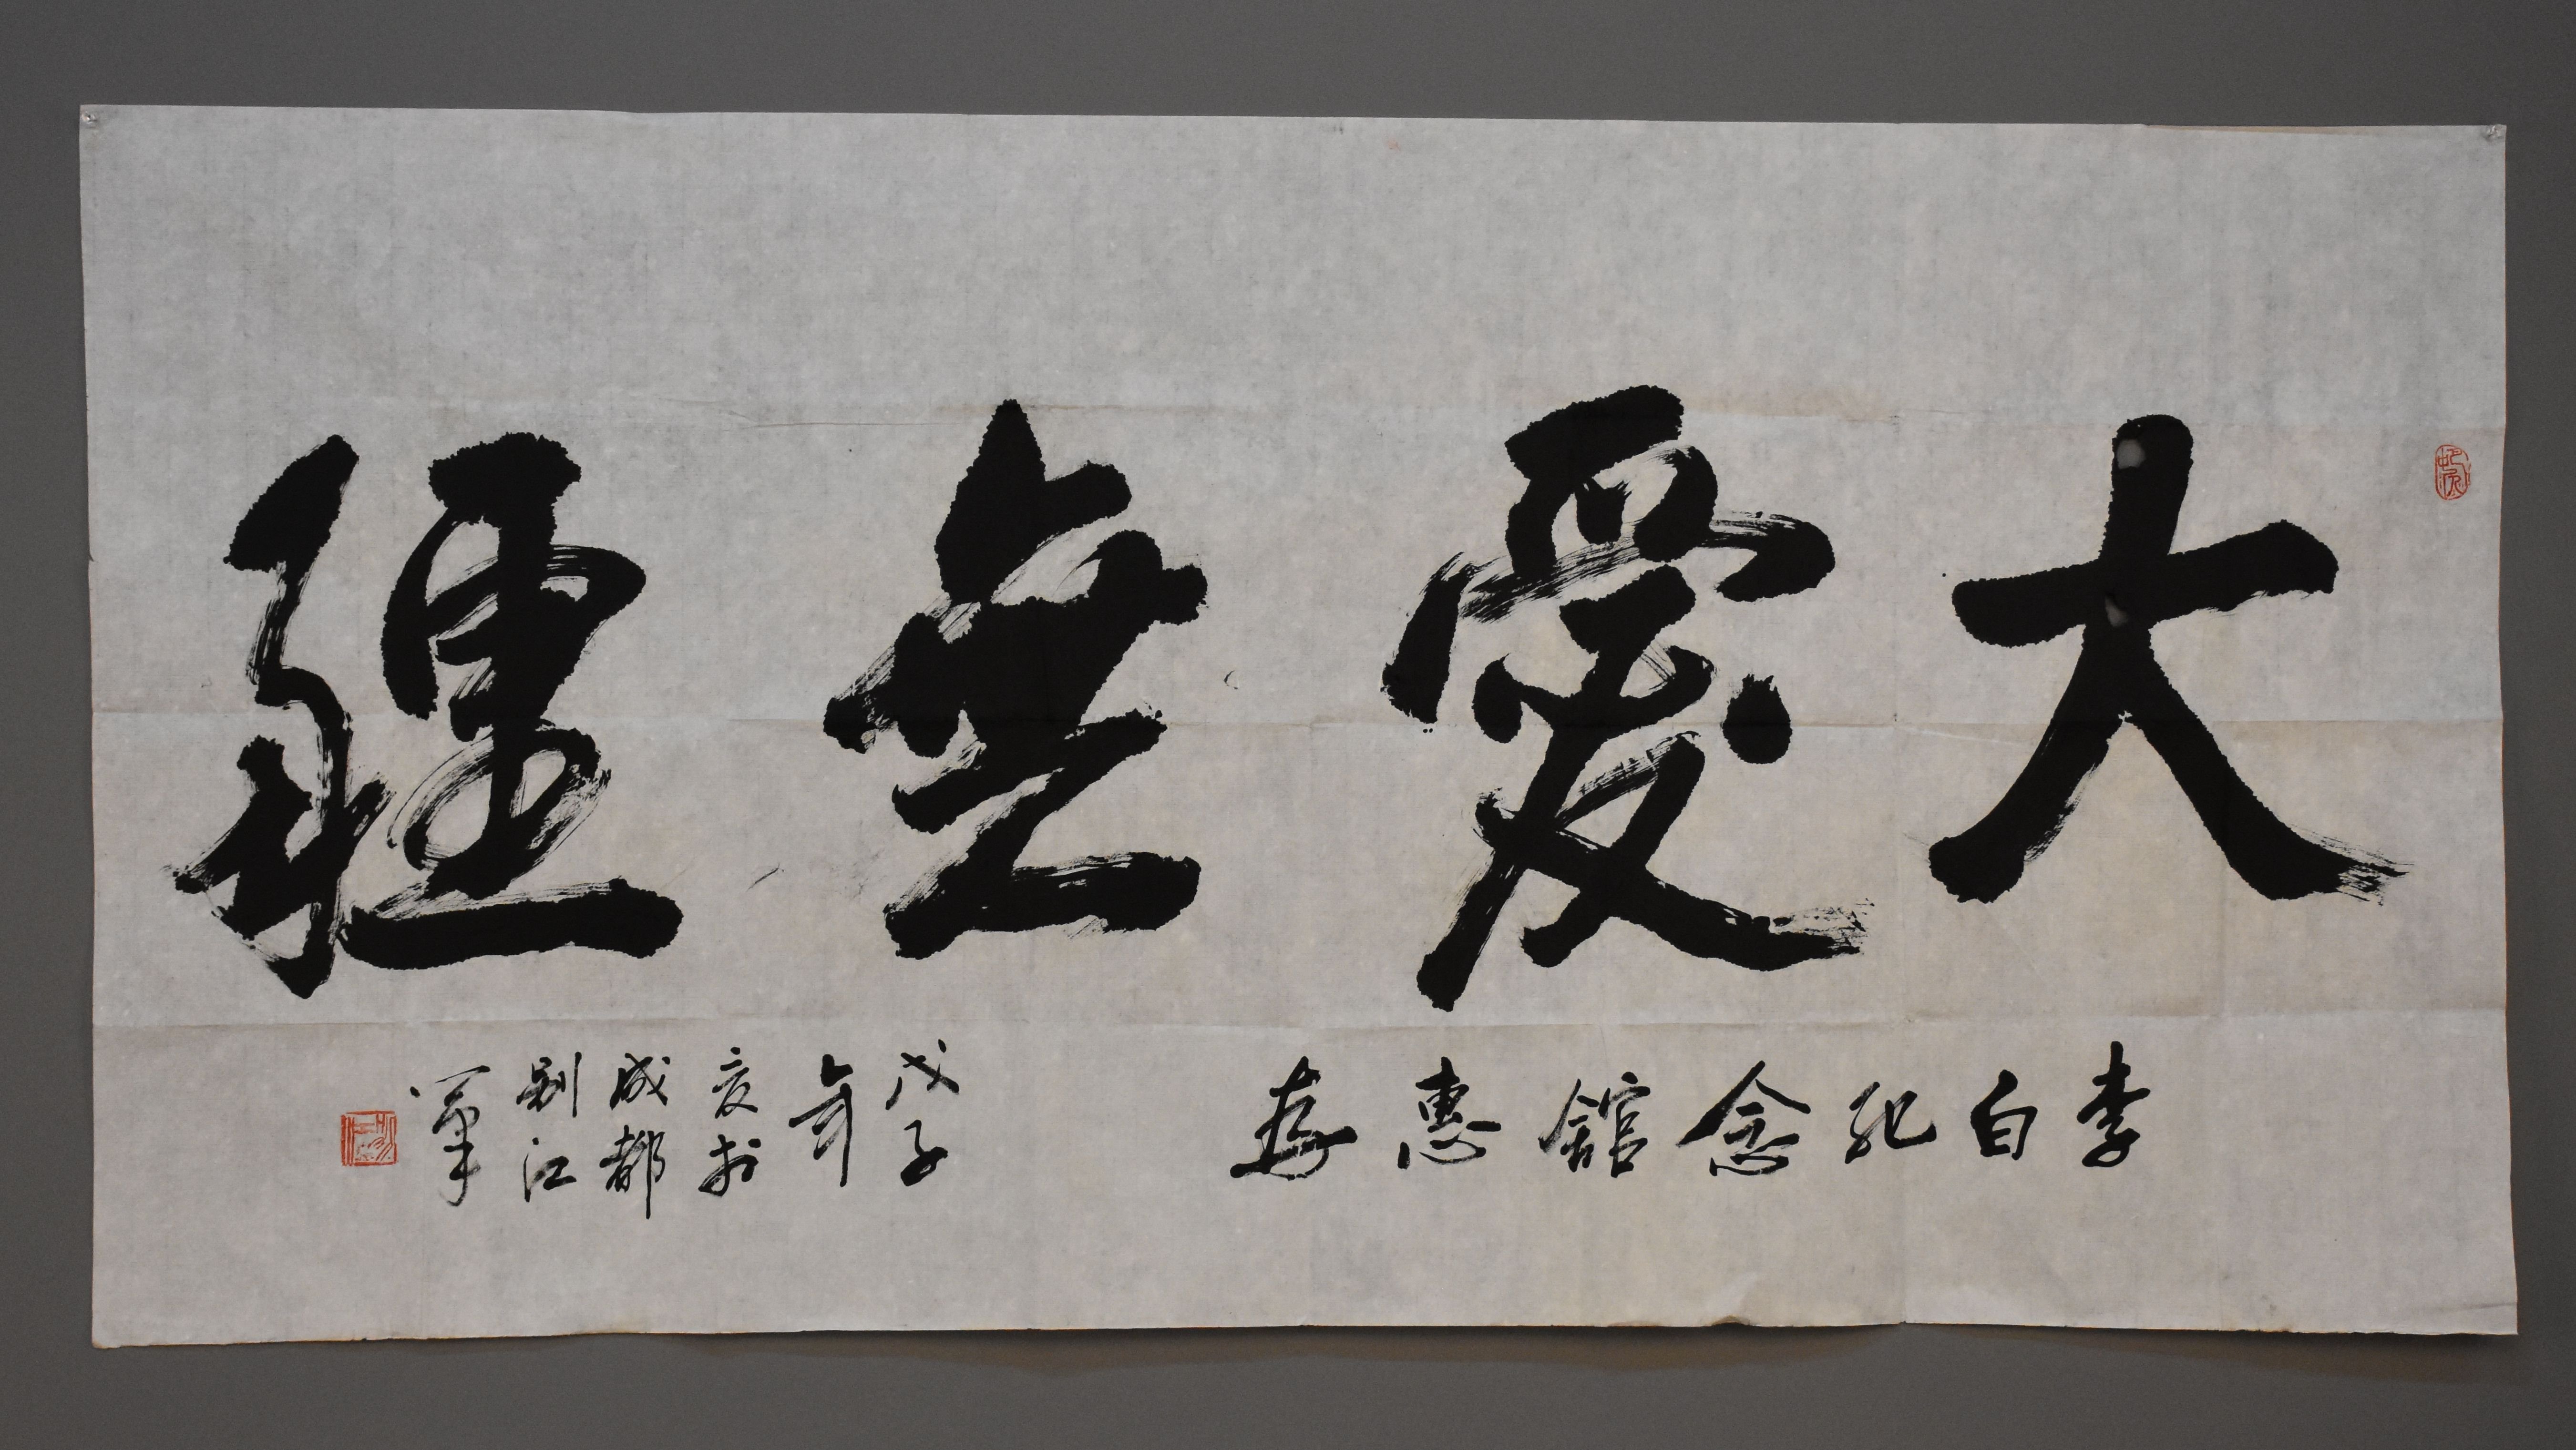 大愛無疆
李白紀念館惠存
戊子年夏於成都別江軍